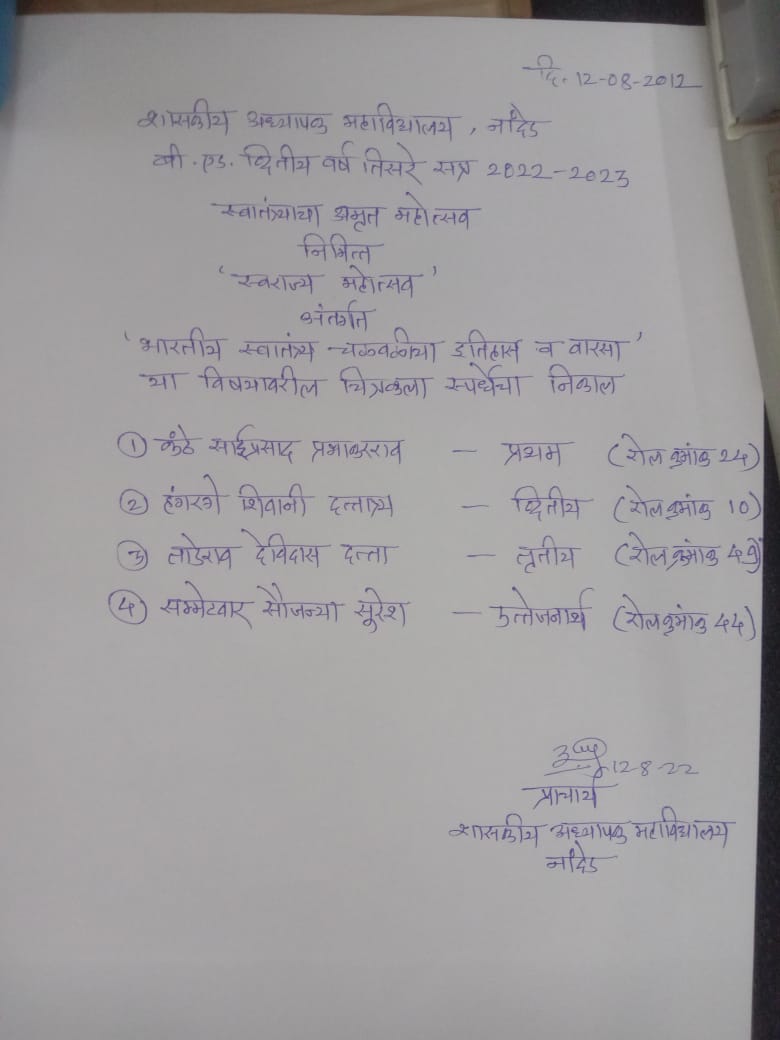 दि. 12-08-2012
शासकीय अध्यापक महाविद्यालय, नांदेड
बी.एड. द्वितीय वर्ष तिसरे सत्र 2022-2023
स्वातंत्र्याचा अमृत महोत्सव
निमित्त
'स्वराज्य महोत्सव'
अंतर्गत
'भारतीय स्वातंत्र्य चळवळीचा इतिहास व वारसा'
या विषयावरील चित्रकला स्पर्धेचा निकाल
① कंठे साईप्रसाद प्रभाकरराव - प्रथम (रोल क्रमांक 24)
② हंगरगे शिवानी दत्तात्र्य - द्वितीय (रोल क्रमांक 10)
③ लाडेराव देविदास दत्ता - तृतीय (रोल क्रमांक
④ सम्मेटवार सौजन्या सुरेश - उत्तेजनार्थ (रोल क्रमांक 44)
12-8-22
प्राचार्य
शासकीय अध्यापक महाविद्यालय
नांदेड